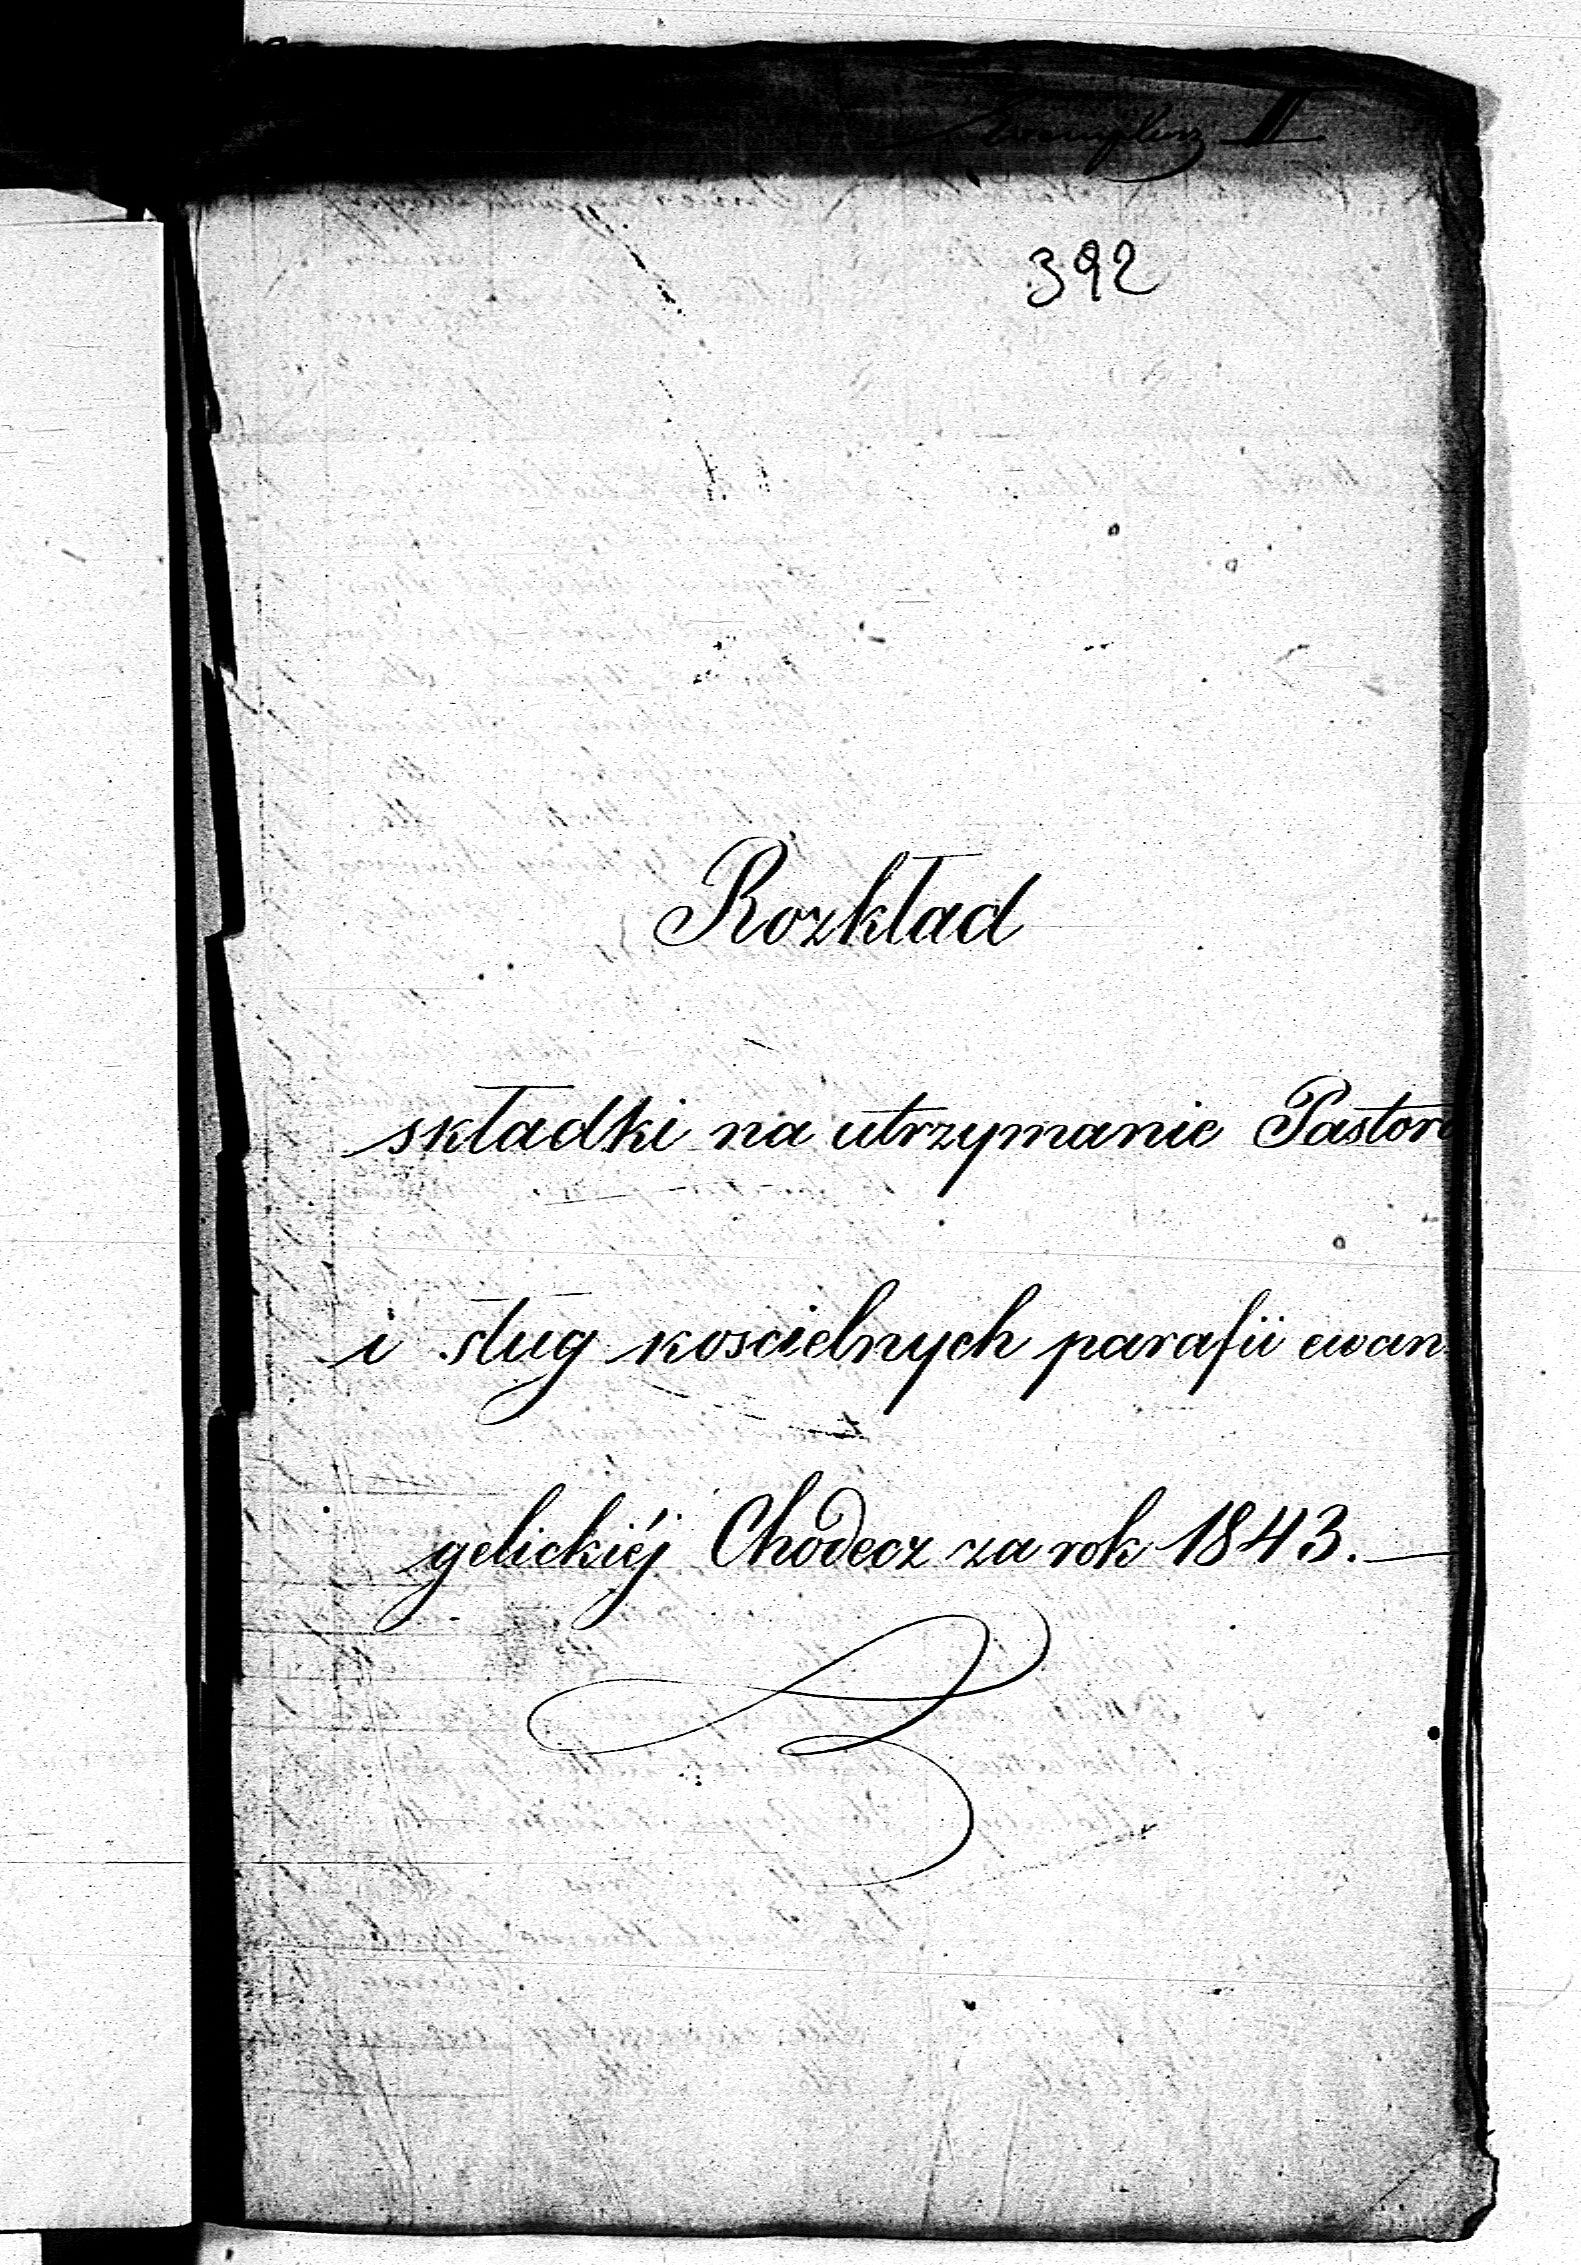 Exemplarz II
392
Rozkład
składki na utrzymanie Pastora
i sług koscielnych parafii ewan-
gelickiéj Chodecz za rok 1843.